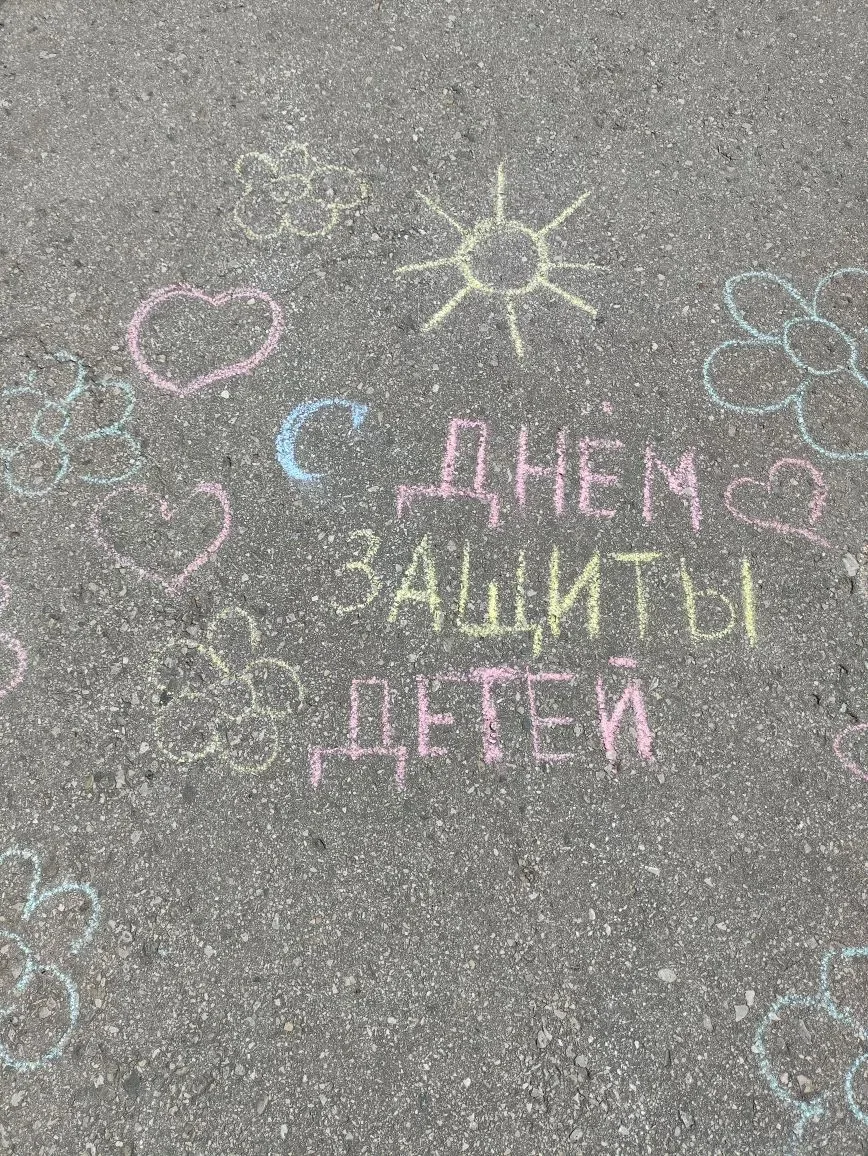 С ДНЁМ
ЗАЩИТЫ
ДЕТЕЙ